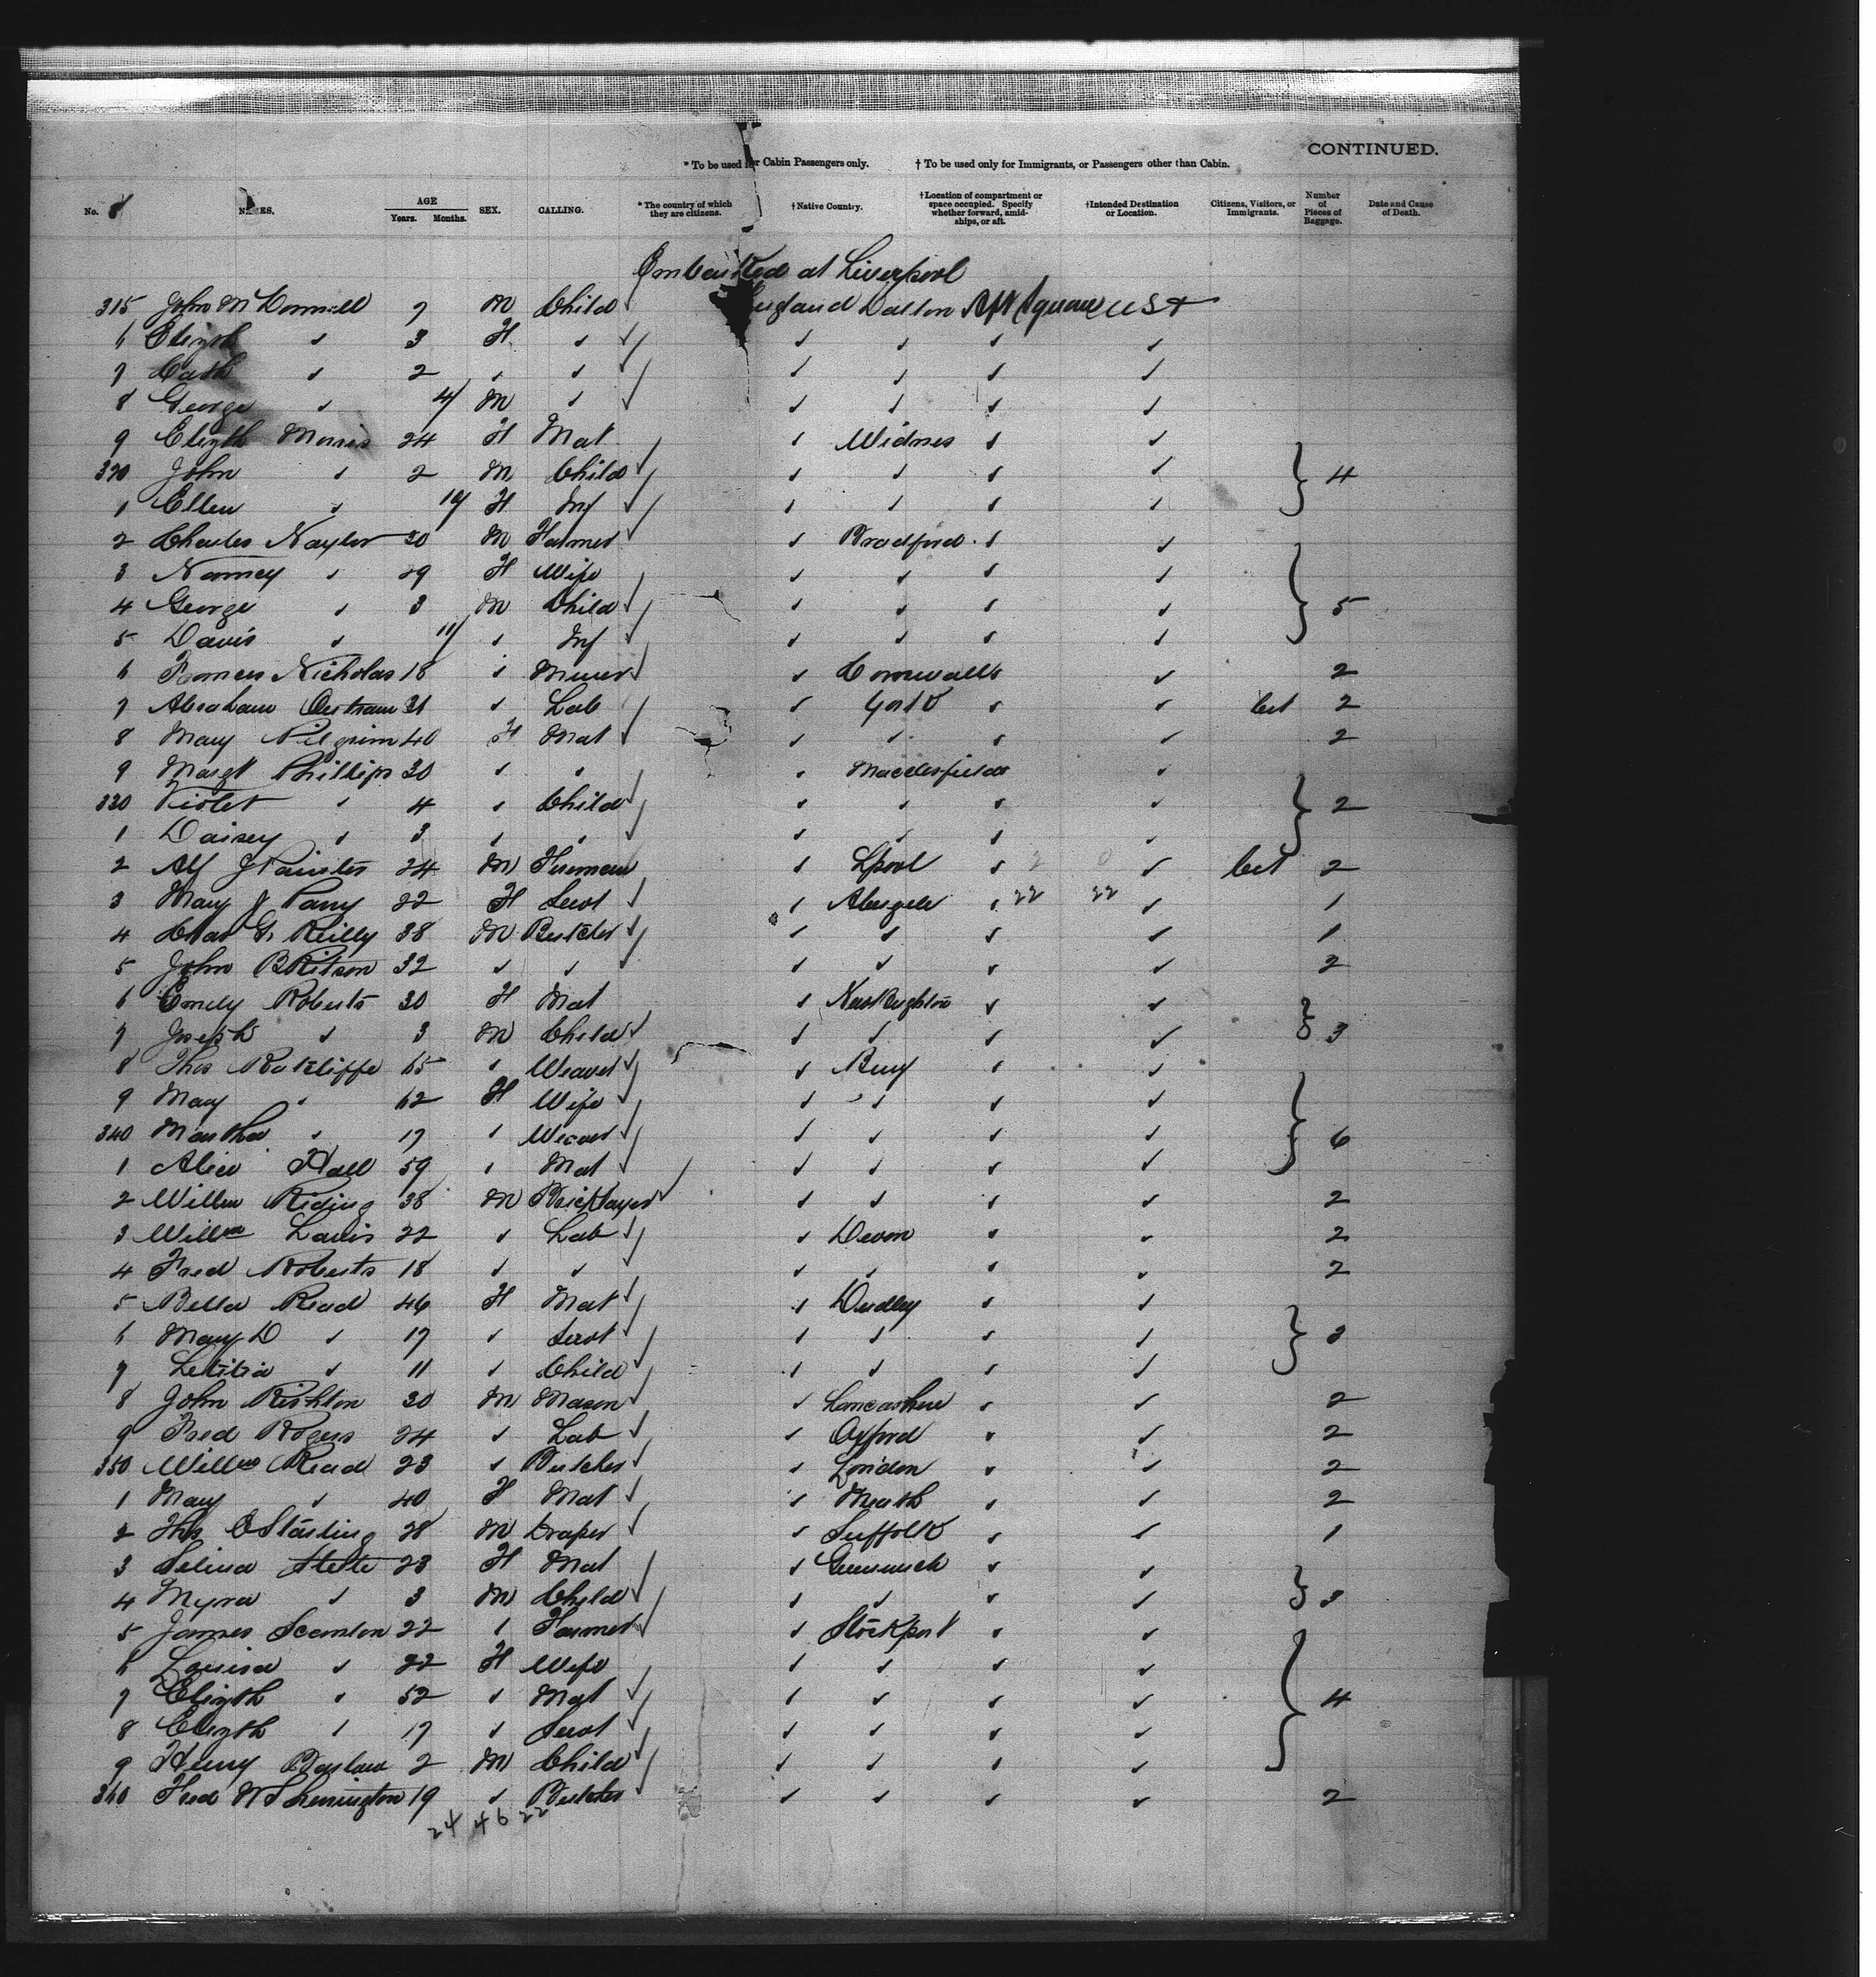 CONTINUED.
* To be used for Cabin Passengers only. † To be used only for Immigrants, or Passengers other than Cabin.
No. NAMES. AGE Years. Months. SEX. CALLING. * The country of which they are citizens. † Native Country. † Location of compartment or space occupied. Specify whether forward, amidships, or aft. † Intended Destination or Location. Citizens, Visitors, or Immigrants. Number of Pieces of Baggage. Date and Cause of Death.
Embarked at Liverpool
315 John McDonnell 7 M Child England Dalton Aft Square USA
6 Elizth 3 F
7 Cath 2
8 George 4/ M
9 Elizth Morris 24 F Mat Widnes
320 John 2 M Child 4
1 Ellen 10/ F Inf
2 Charles Naylor 30 M Farmer Bradford
3 Nanney 29 F Wife
4 George 3 M Child 5
5 Davis 11/ Inf
6 Nicholas 18 Miner Cornwall 2
7 Abraham 31 Lab York 2
8 Mary Pilgrim 40 F Mat 2
9 Margt Phillips 30 Macclesfield
330 Violet 4 Child 2
1 Daisey 3
2 Alf J Painter 24 M Fireman Lpool 2
3 Mary J Parry 22 F Servt Abergele 22 22 1
4 Chas G. Reilly 38 M Butcher 1
5 John B Ritson 32 2
6 Emely Roberts 30 F Mat New Brighton
7 Joseph 3 M Child 3
8 Thos Ratcliffe 65 Weaver Bury
9 Mary 62 F Wife
340 Martha 17 Weaver 6
1 Alice Hall 59 Mat
2 Willm Riding 38 M Bricklayer 2
3 Willm Lavis 22 Lab Devon 2
4 Fred Roberts 18 2
5 Bella Read 46 F Mat Dudley
6 Mary D 17 Servt 3
7 Letitia 11 Child
8 John Rishton 30 M Mason Lancashire 2
9 Fred Rogers 24 Lab Oxford 2
350 Willm Read 23 Butcher London 2
1 Mary 40 F Mat Meath 2
2 Thos O Starling 28 M Draper Suffolk 1
3 Selina 23 F Mat Greenwich
4 Myra 3 M Child 3
5 James Scanlon 22 Farmer Stockport
6 Louisa 22 F Wife
7 Elizth 52 Mat 4
8 Elizth 17 Servt
9 Henry 2 M Child
360 Fred 19 Butcher 2
24 46 22